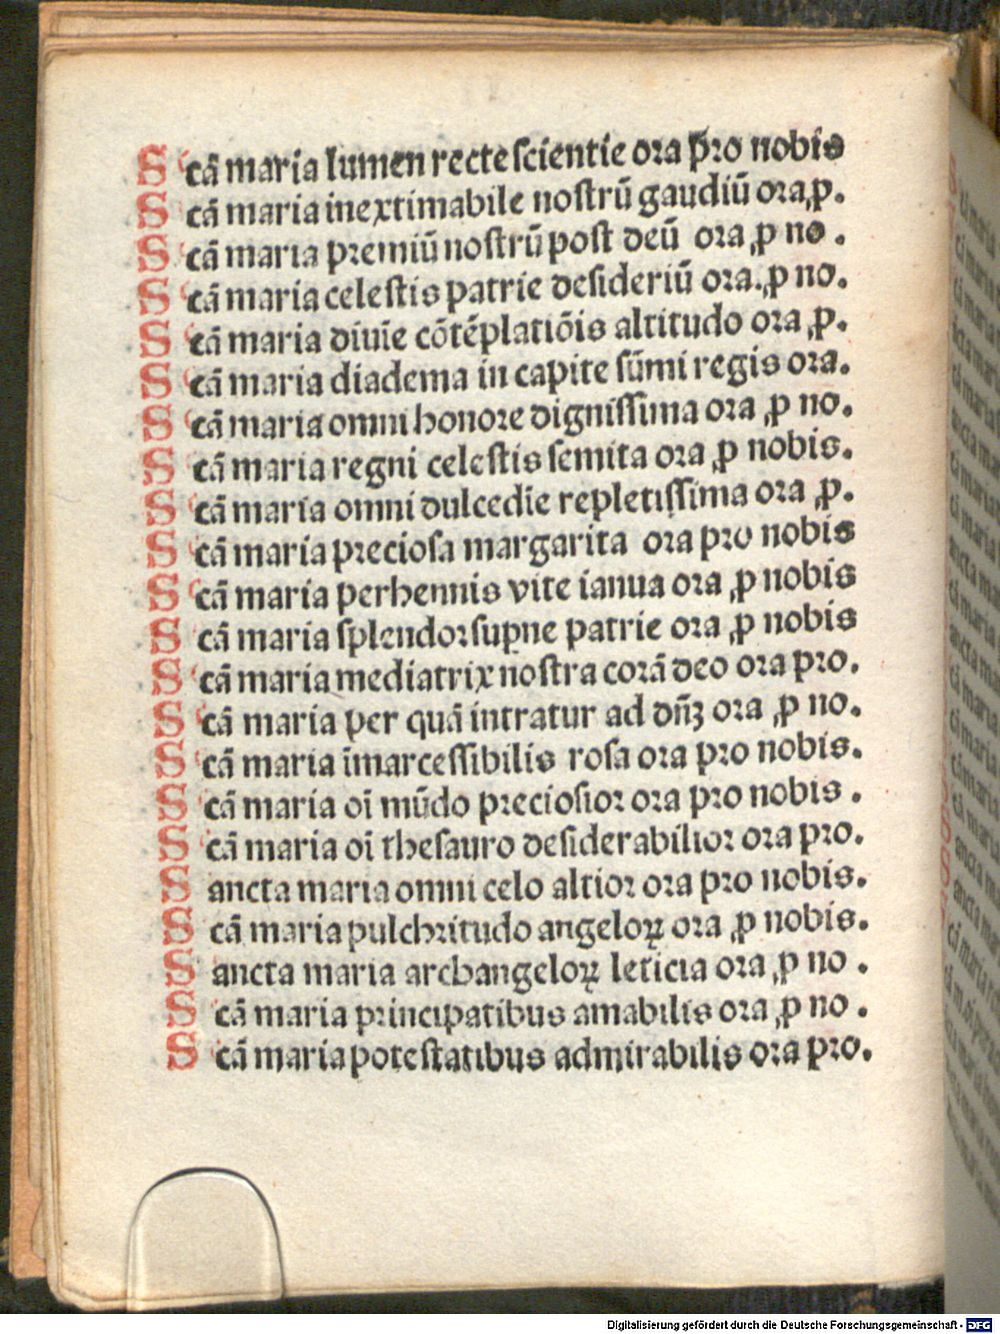 Scã maria lumen recte scientie ora pro nobis
Scã maria inextimabile nostrũ gaudiũ ora ꝓ.
Scã maria premiũ nostrũ post deũ ora ꝓ no.
Scã maria celestis patrie desideriũ ora. ꝓ no.
Scã maria diuīe cõtẽplatiõis altitudo ora ꝓ.
Scã maria diadema in capite sũmi regis ora.
Scã maria omni honore dignissima ora ꝓ no.
Scã maria regni celestis semita ora ꝓ nobis.
Scã maria omni dulcedīe repletissima ora ꝓ.
Scã maria preciosa margarita ora pro nobis
Scã maria perhennis vite ianua ora ꝓ nobis
Scã maria splendor supne patrie ora ꝓ nobis
Scã maria mediatrix nostra corã deo ora pro.
Scã maria per quã intratur ad dñꝫ ora ꝓ no.
Scã maria īmarcessibilis rosa ora pro nobis.
Scã maria oī mũdo preciosior ora pro nobis.
Scã maria oī thesauro desiderabilior ora pro.
Sancta maria omni celo altior ora pro nobis.
Scã maria pulchritudo angeloꝝ ora ꝓ nobis.
Sancta maria archangeloꝝ leticia ora ꝓ no.
Scã maria principatibus amabilis ora ꝓ no.
Scã maria potestatibus admirabilis ora pro.
Digitalisierung gefördert durch die Deutsche Forschungsgemeinschaft - DFG